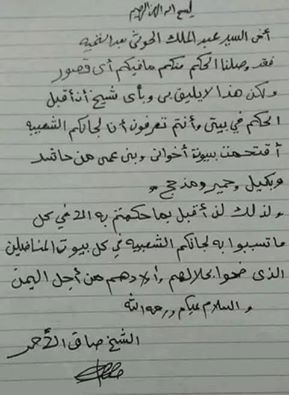 بسم الله الرحمن الرحيم
أخي السيد عبد الملك الحوثي بعد التحية
فقد وصلنا الحكم منكم مافيكم أي قصور
ولكن هذا لايليق بي وبأي شيخ أن أقبل
الحكم في بيتي وأنتم تعرفون أن لجانكم الشعبية
أقتحمت بيوت أخواني وبني عمي من حاشد
وبكيل وحمير ومذحج
ولذلك لن أقبل بما حكمتم به إلا في كل
ماتسببوا به لجانكم الشعبية في كل بيوت المناضلين
الذي ضحوا بحلالهم وأولادهم من أجل اليمن
والسلام عليكم ورحمة الله
الشيخ صادق الأحمر